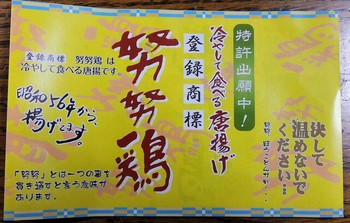 特許出願中！
冷やして食べる唐揚げ
登録商標
努努鶏
決して
温めないで
ください…
登録商標 努努鶏 は
冷やして食べる唐揚です。
昭和56年から、
揚げてます。
「努努」とは一つの事を
貫き通すと言う意味が
あります。